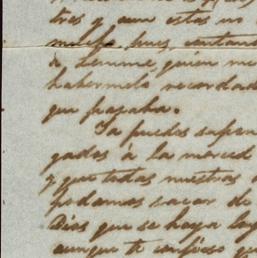 tres y aun estas no
pues
de Lemmé quien me
habermelo recordado
que pasaba.
Ya puedes
gados á la merced
y que todas nuestras
podamos sacar de
Dios que se haya
aunque te confieso que